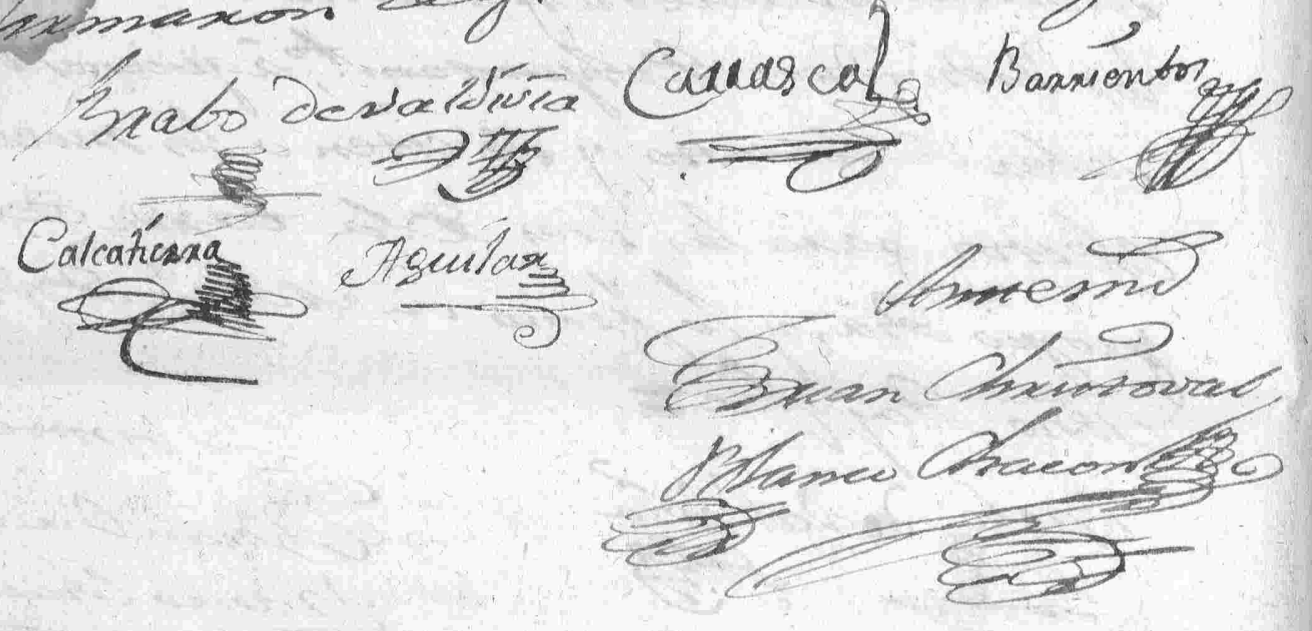 Brabo de valdivia Carrascal Barrientos
Calcatierra Aguilar
Ante mi
Juan Christoval
Blanco Chacon